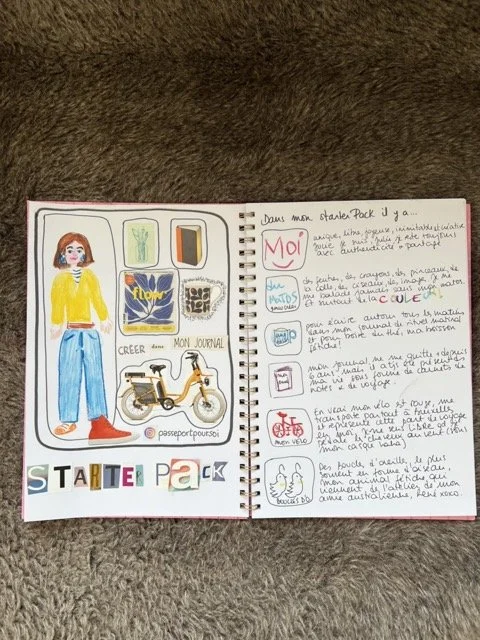 flow
CRÉER dans MON JOURNAL
passeportpoursoi
STARTER PACK
Dans mon starter Pack il y a...
Moi
unique, libre, joyeuse, inimitable et créative
avec authenticité
du MATOS
des feutres, des crayons, des pinceaux, de
la colle, des ciseaux, des images, je me
balade jamais sans mon matos
et surtout de la COULEUR!
pour écrire autour tous les matins
dans mon journal de rituel matinal
et pour boire du thé, ma boisson
fétiche!
mon journal ne me quitte depuis
6 ans mais il a tjs été présent dans
ma vie sous forme de carnets de
notes et de voyage.
MON VÉLO
En vrai mon vélo est rouge, me
transporte partout à Bruxelles,
et représente cette part de voyage
en moi. Je me sens libre qd je
pédale les cheveux au vent (sous
mon casque haha)
BOUCLES D'O
Des boucles d'oreille, le plus
souvent en forme d'oiseau,
mon animal fétiche, qui
viennent de l'atelier de mon
amie australienne,